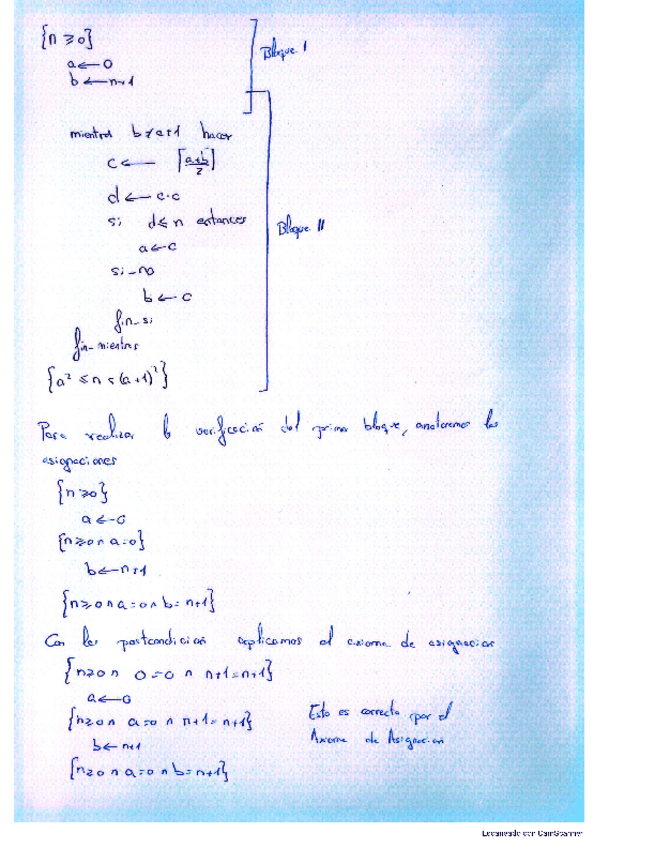 {n ≥ 0}
a ← 0
b ← n+1
Bloque I
mientras b ≠ a+1 hacer
c ← ⌈(a+b)/2⌉
d ← c·c
si d ≤ n entonces
a ← c
si-no
b ← c
fin-si
fin-mientras
{a² ≤ n < (a+1)²}
Bloque II
Para realizar la verificación del primer bloque, anotaremos las
asignaciones
{n ≥ 0}
a ← 0
{n ≥ 0 ∧ a = 0}
b ← n+1
{n ≥ 0 ∧ a = 0 ∧ b = n+1}
Con la postcondición aplicamos el axioma de asignación
{n ≥ 0 ∧ 0 = 0 ∧ n+1 = n+1}
a ← 0
{n ≥ 0 ∧ a = 0 ∧ n+1 = n+1}
b ← n+1
{n ≥ 0 ∧ a = 0 ∧ b = n+1}
Esto es correcto por el
Axioma de Asignación
Escaneado con CamScanner